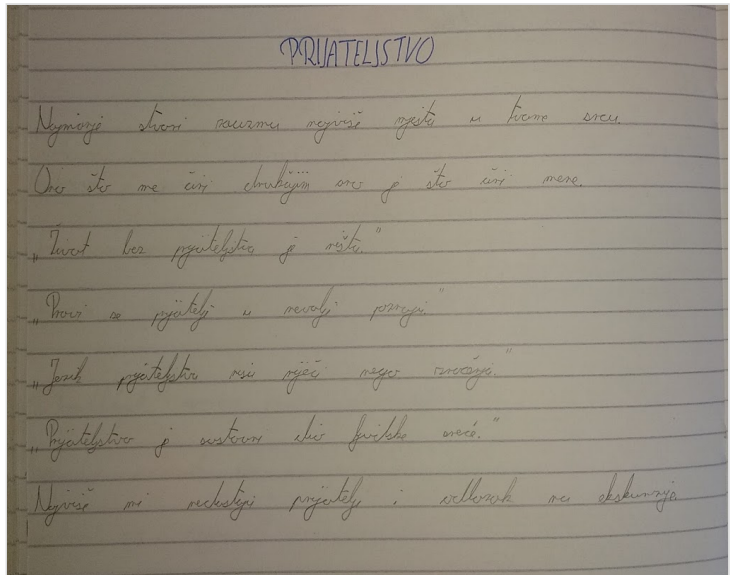 PRIJATELJSTVO
Najmanje stvari zauzmu najviše mjesta u tvome srcu.
Ono što me čini drukčijim ono je što čini mene.
„Život bez prijateljstva je ništa.”
„Pravi se prijatelj u nevolji poznaje.”
„Jezik prijateljstva nisu riječi nego značenja.”
„Prijateljstvo je sustavni dio ljudske sreće.”
Najviše mi nedostaju prijatelji i odlazak na ekskurzije.